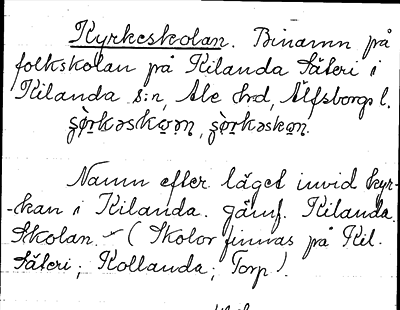 Kyrkeskolan. Binamn på
folkskolan på Kilanda Säteri i
Kilanda s:n, Ale hrd, Älfsborgs l.
Namn efter läget invid kyr-
-kan i Kilanda. Jämf. Kilanda
Skolan. - (Skolor finnas på Kil.
Säteri; Kollanda; Torp).